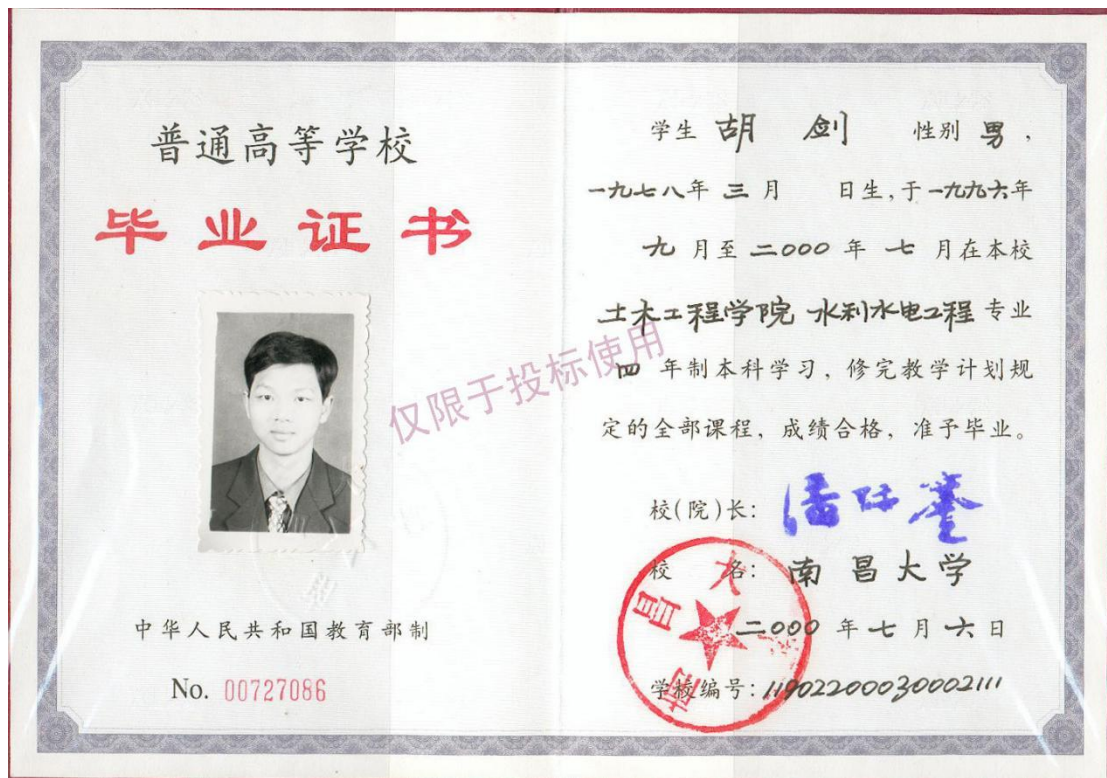 普通高等学校
毕业证书
中华人民共和国教育部制
No. 00727086
学生 胡 剑 性别 男，
一九七八年 三 月 日生，于一九九六年
九 月至 二000 年 七 月在本校
土木工程学院 水利水电工程 专业
四 年制本科学习，修完教学计划规
定的全部课程，成绩合格，准予毕业。
校(院)长：
校 名：南昌大学
二000 年 七 月 六 日
学校编号：
仅限于投标使用
南昌大